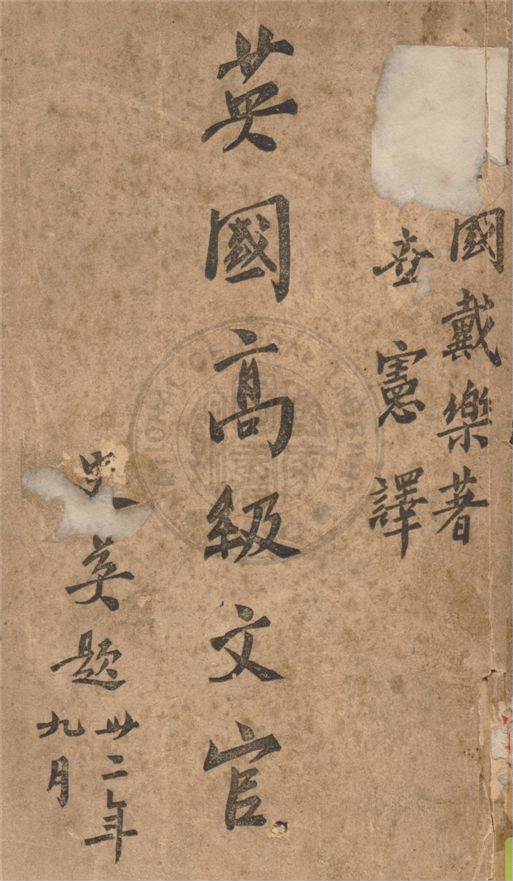 國戴樂著
憲譯
英國高級文官
史美題
卅二年
九月